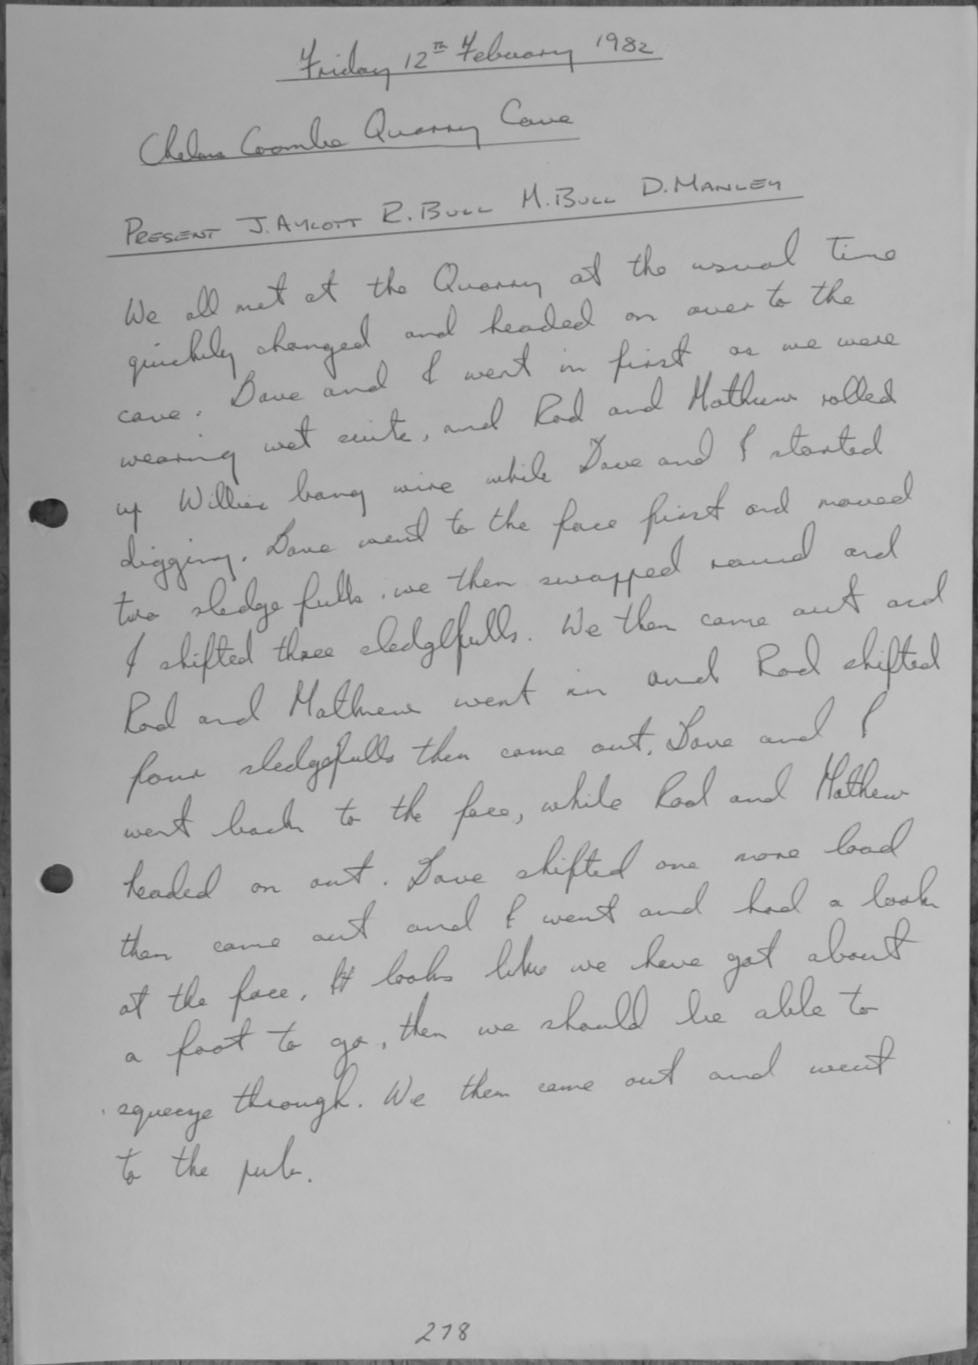 Friday 12TH February 1982
Chelms Coombe Quarry Cave
PRESENT J. AYLOTT R. BULL M. BULL D. MANLEY
We all met at the Quarry at the usual time
quickly changed and headed on over to the
cave. Dave and I went in first as we were
wearing wet suits, and Rod and Mathew rolled
up Willies bang wire while Dave and I started
digging. Dave went to the face first and moved
two sledge fulls. we then swapped round and
I shifted three sledgefulls. We then came out and
Rod and Mathew went in and Rod shifted
four sledgefulls then came out. Dave and I
went back to the face, while Rod and Mathew
headed on out. Dave shifted one more load
then came out and I went and had a look
at the face. It looks like we have got about
a foot to go, then we should be able to
squeeze through. We then came out and went
to the pub.
278